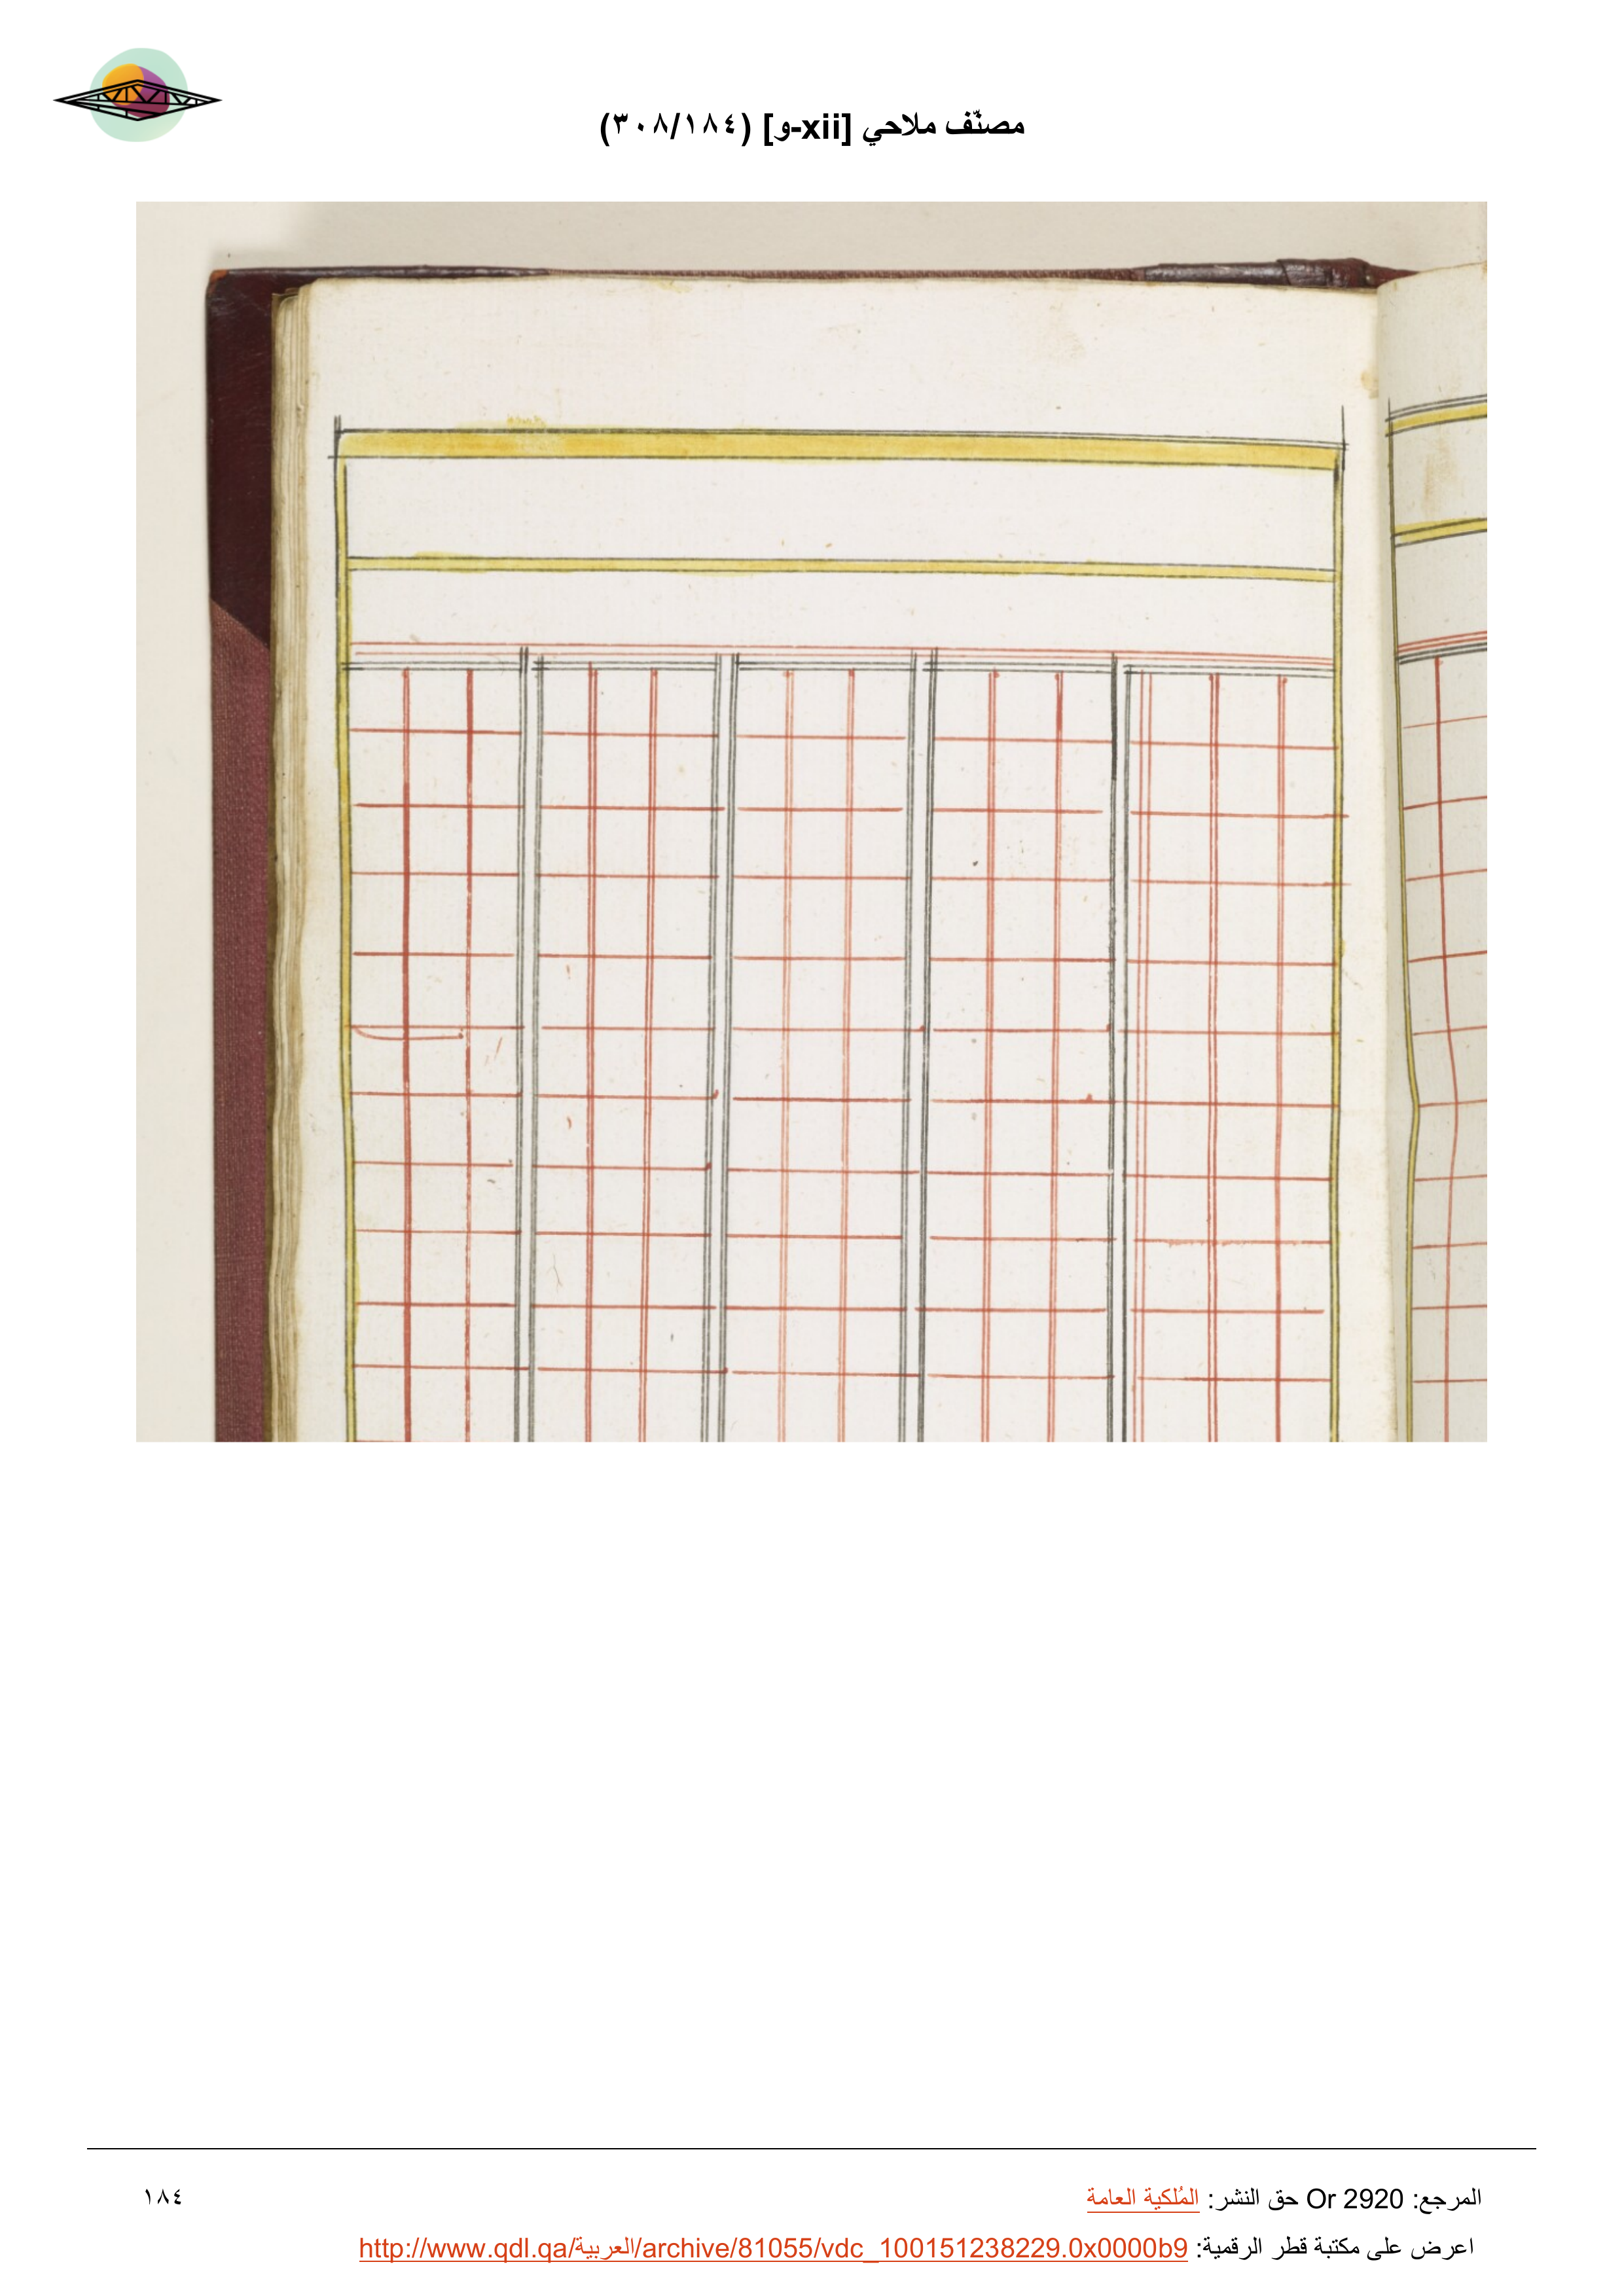 مصنّف ملاحي [xii-و] (٣٠٨/١٨٤)
المرجع: Or 2920 حق النشر: المُلكية العامة
١٨٤
اعرض على مكتبة قطر الرقمية: http://www.qdl.qa/العربية/archive/81055/vdc_100151238229.0x0000b9